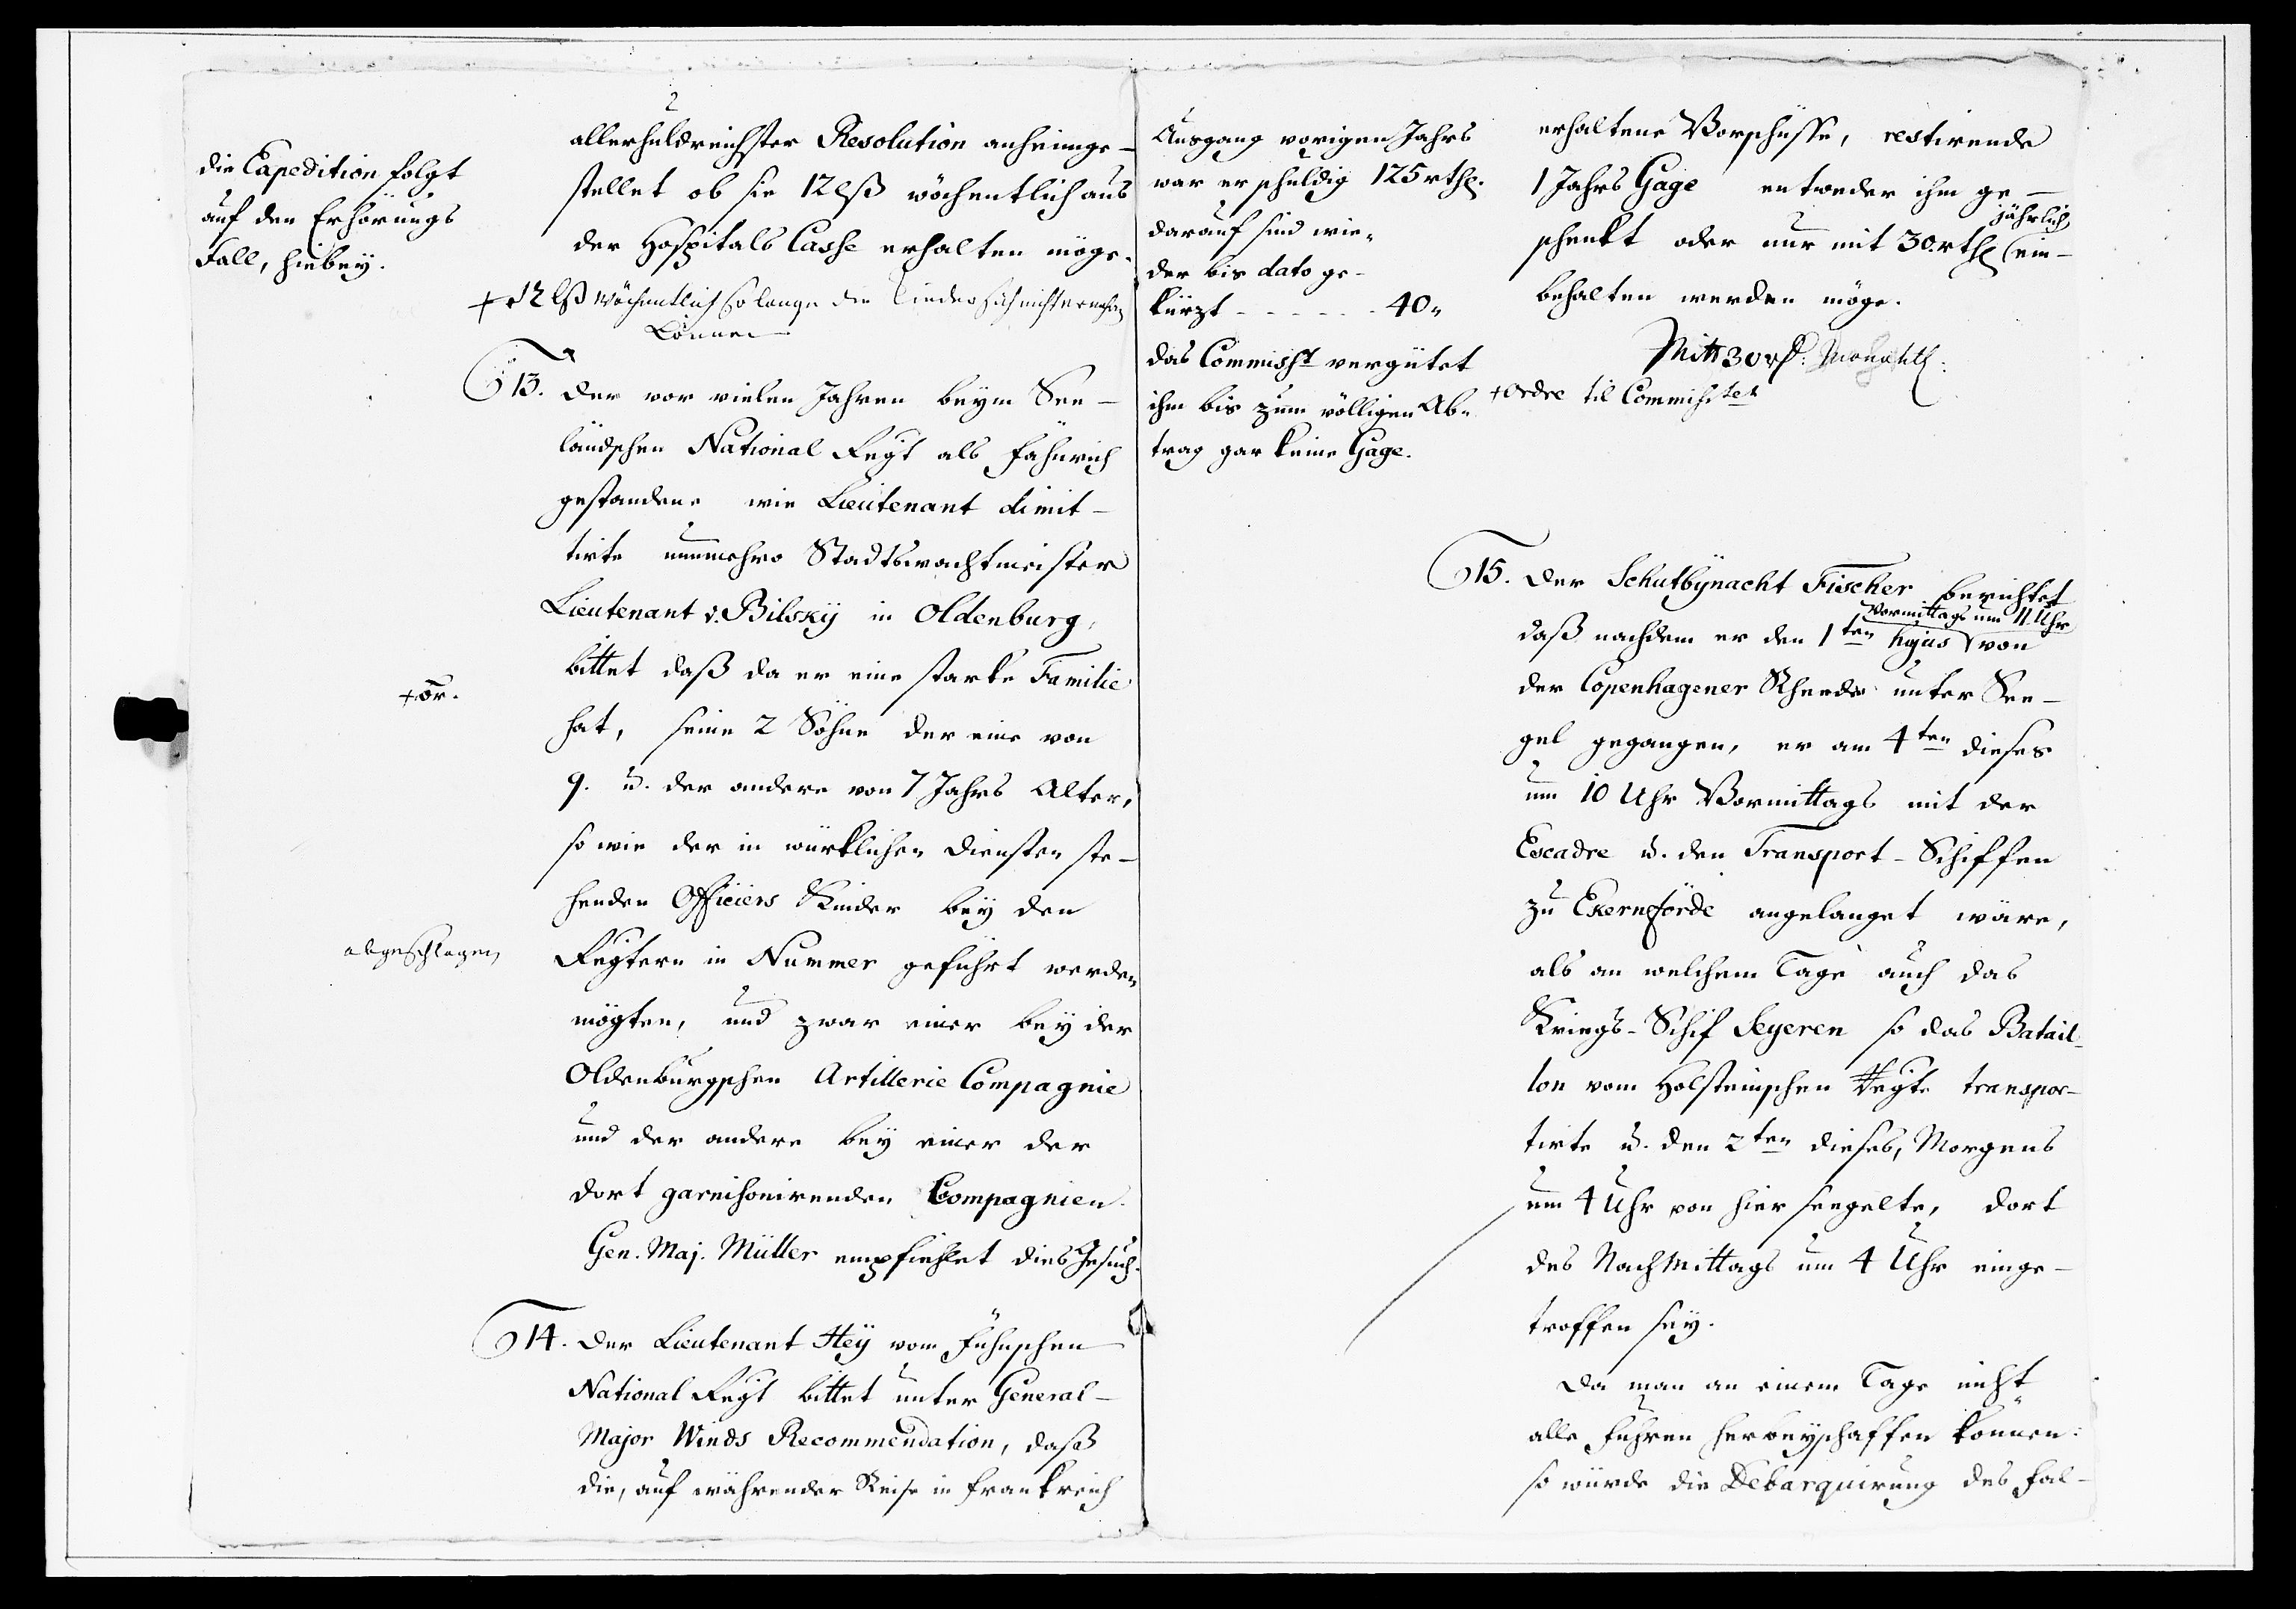 die Expedition folgt
auf den Erhörungs
Fall, hiebey.
allerhuldreichster Resolution anheimge-
stellet ob sie 12 lß wöchentlich aus
der Hospitals Casse erhalten möge.
+ 12 lß wöchentlich so lange die Kinder sich nicht ernehren
können
13. Der vor vielen Jahren beym See-
ländschen National Regt als Fähnrich
gestandene wie Lieutenant dimit-
tirte nunmehro Stadtswachtmeister
Lieutenant v. Bilsky in Oldenburg,
bittet daß da er eine starke Familie
+ or.
hat, seine 2 Söhne der eine von
9. u. der andere von 7 Jahrs Alter,
so wie der in würklichen Diensten ste-
henden Officiers Kinder bey den
abgeschlagen
Regtern in Nummer geführt werden
mögten, und zwar einer bey der
Oldenburgschen Artillerie Compagnie
und der andere bey einer der
dort garnisonirenden Compagnien.
Gen. Maj. Müller empfiehlet dies Gesuch.
14. Der Lieutenant Hey vom Fühnschen
National Regt bittet unter General-
Major Winds Recommendation, daß
die, auf währender Reise in Frankreich
Ausgang vorigen Jahrs
war er schuldig 125 rthl.
darauf sind wie-
der bis dato ge-
kürzt - - - - - - 40 "
das Commisst vergütet
ihm bis zum völligen Ab-
trag gar keine Gage.
erhaltene Vorschüsse, restirende
1 Jahrs Gage entweder ihm ge-
jährlich
schenkt oder nur mit 30 rthl ein-
behalten werden möge.
Mitt 30 rth. Monathl.
+ Ordre til Commiss:tet
15. Der Schutbynacht Fischer berichtet
Vormittags um 11 Uhr
daß nachdem er den 1ten hujus von
der Copenhagener Rheede unter See-
gel gegangen, er am 4ten dieses
um 10 Uhr Vormittags mit der
Escadre u. den Transport-Schiffen
zu Ekernförde angelanget wäre,
als an welchem Tage auch das
Kriegs-Schif Seyeren so das Batail-
lon vom Holsteinschen Regte transpor-
tirte u. den 2ten dieses, Morgens
um 4 Uhr von hier seegelte, dort
des Nachmittags um 4 Uhr einge-
troffen sey.
Da man an einem Tage nicht
alle Fuhren herbeyschaffen können:
so würde die Debarquirung des Fal-